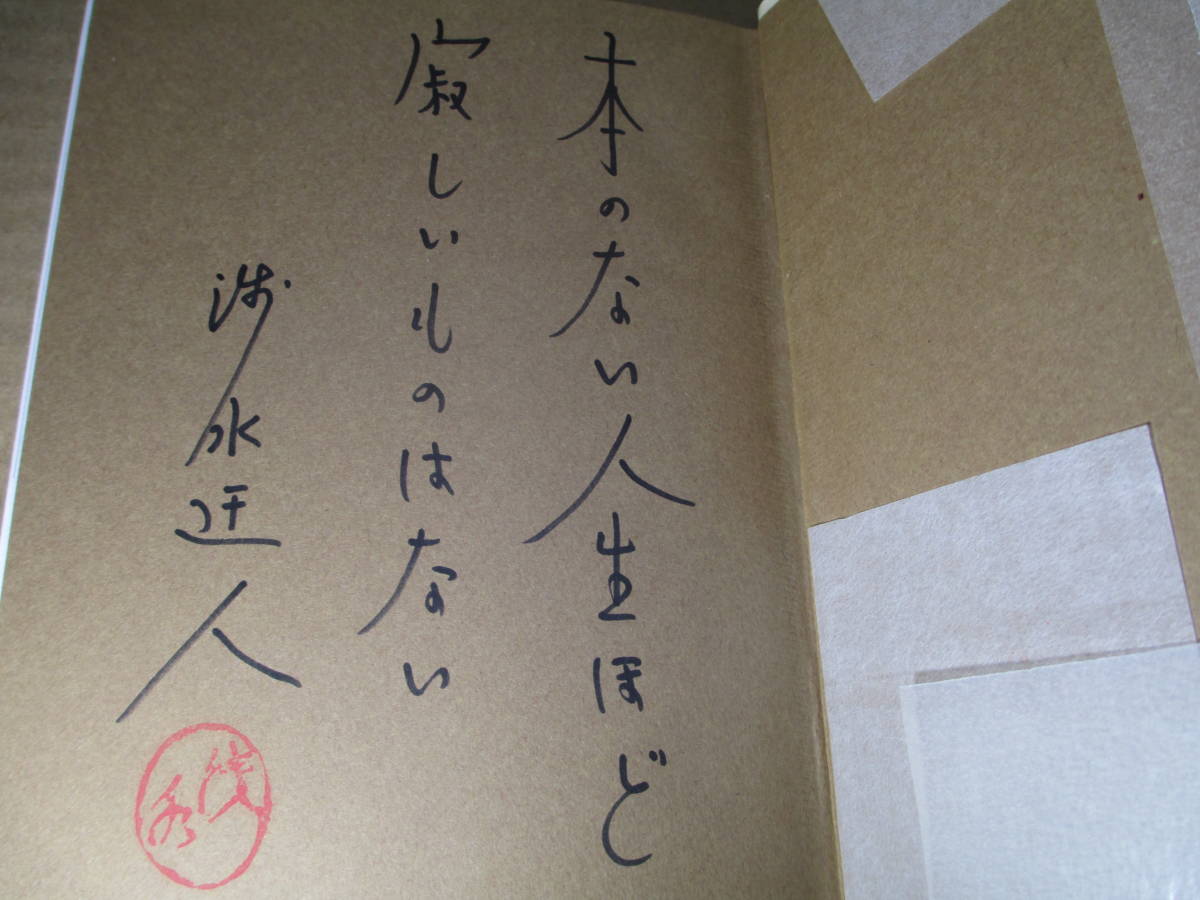 本のない人生ほど
寂しいものはない
渉水迂人